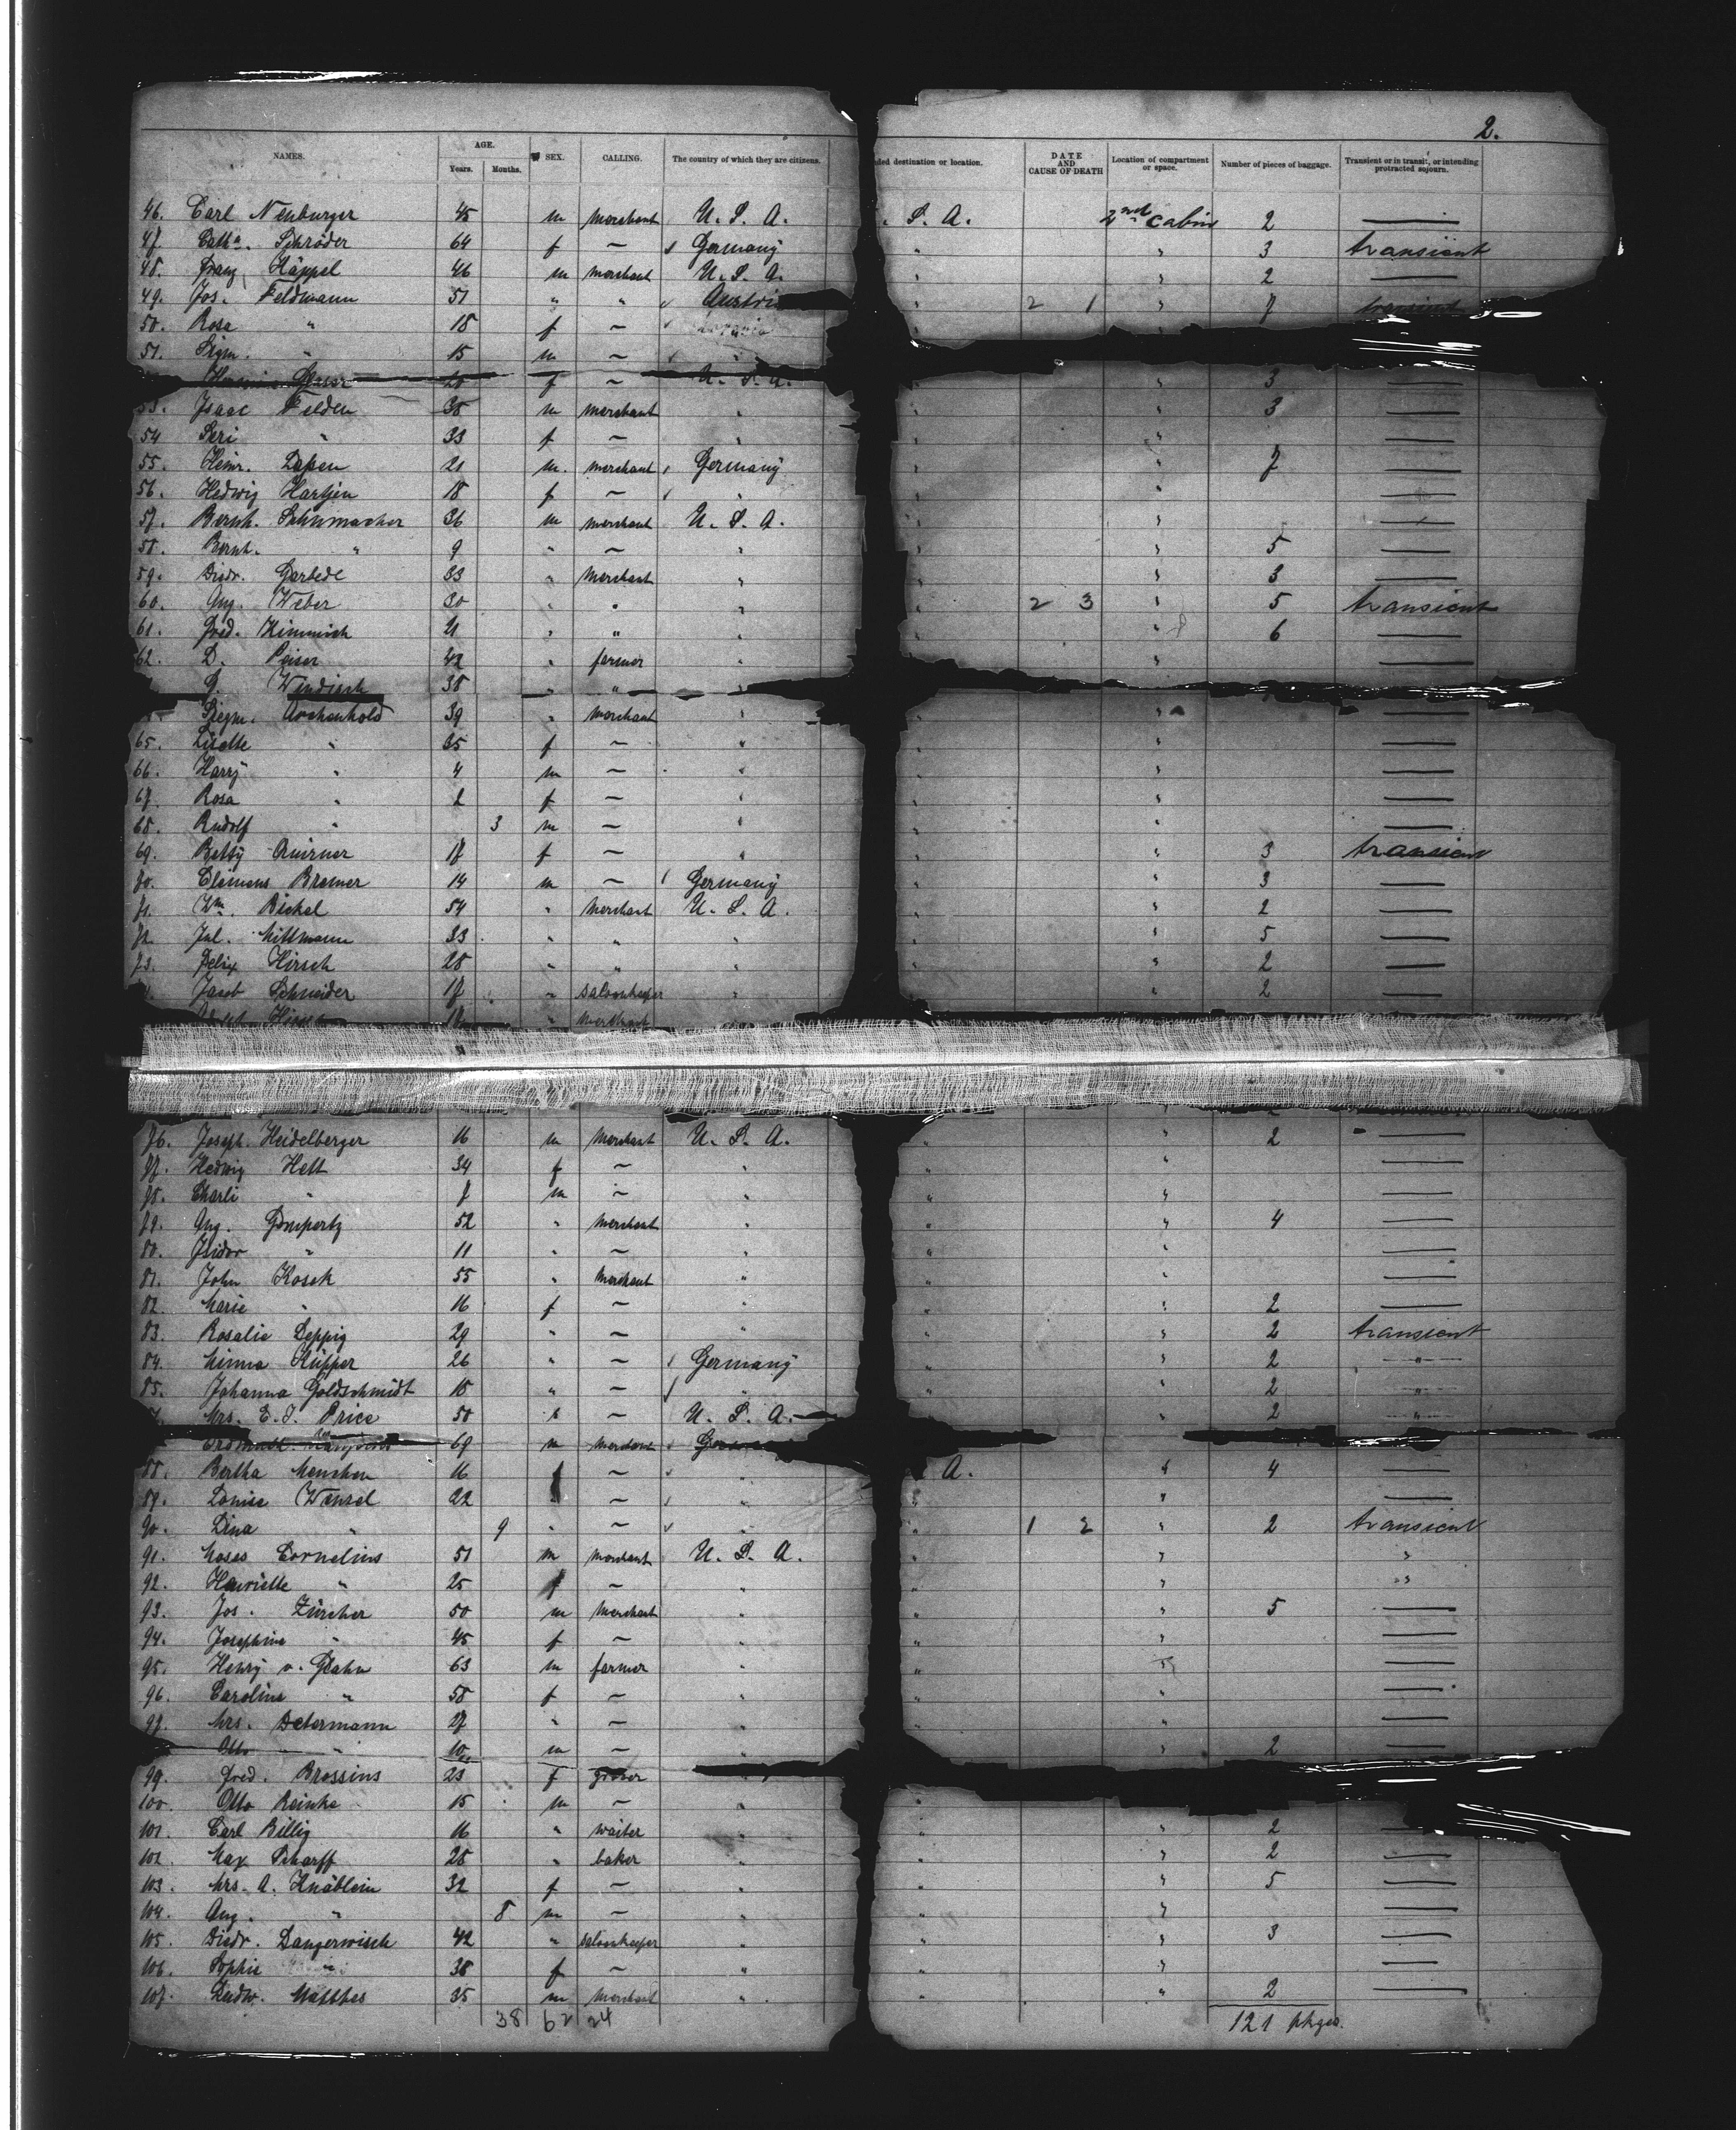 2.
NAMES. AGE. Years. Months. SEX. CALLING. The country of which they are citizens. ded destination or location. DATE AND CAUSE OF DEATH Location of compartment or space. Number of pieces of baggage. Transient or in transit, or intending protracted sojourn.
46. Carl Neuburger 45 m merchant U. S. A. . S. A. 2nd cabin 2 —
47. Cath. Schröder 64 f — Germany " " 3 transient
48. Franz Häppel 46 m merchant U. S. A. " " 2 —
49. Jos. Feldmann 51 " " Austri " 2 1 " 7
50. Rosa " 18 f —
51. Sigm. " 15 m — "
Glaser 20 f — U. S. A. " " 3 —
53. Isaac Felden 38 m merchant " " " 3 —
54 Seri " 33 f — " " " —
55. Heinr. 21 m. merchant Germany " " 7 —
56. Hedwig Hartjen 18 f — " " " —
57. Bernh. Schumacher 36 m merchant U. S. A. " " —
58. Bernh. " 9 " — " " " 5 —
59. Diedr. Garbede 33 " merchant " " " 3 —
60. Aug. Weber 30 " " " " 2 3 " 5 transient
61. Fred. Himmich 21 " " " " " 6 —
62. D. Peiser 42 " farmer " " " —
G. Windisch 38 " " "
Siegm. Archenhold 39 " merchant " " —
65. Lisette " 35 f — " " " —
66. Harry " 4 m — " " " —
67. Rosa " 2 f — " " " —
68. Rudolf " 3 m — " " " —
69. Betty Quirner 17 f — " " " 3 transient
70. Clemens Bremer 14 m — Germany " " 3 —
71. Wm. Bickel 54 " merchant U. S. A. " " 2 —
72. Jul. Mittmann 33 " " " " " 5 —
73. Felix Hirsch 28 " " " " " 2 —
Jacob Schneider 17 " saloonkeeper " " " 2 —
" merchant
76. Joseph Heidelberger 16 m merchant U. S. A. " " 2 —
77. Hedwig Helt 34 f — " " " —
78. Charli " 7 m — " " " —
79. Aug. Gompertz 52 " merchant " " " 4 —
80. Isidor " 11 " — " " " —
81. John Kosek 55 " merchant " " " —
82. Marie " 16 f — " " " 2 —
83. Rosalie Leppig 29 " — " " " 2 transient
84. Minna Küpper 26 " — Germany " " 2 "
85. Johanna Goldschmidt 18 " — " " " 2 "
Mrs. E. J. Price 50 " — U. S. A. " 2 "
69 m merchant
88. Bertha Menchen 16 f — " A. " 4 —
89. Louise Wensel 22 " — " " " —
90. Lina " 9 " — " " 1 2 " 2 transient
91. Moses Cornelius 51 m merchant U. S. A. " " "
92. Henriette " 25 f — " " " "
93. Jos. Zürcher 50 m merchant " " " 5 —
94. Josephine " 45 f — " " " —
95. Henry v. Glahn 63 m farmer " " " —
96. Caroline " 58 f — " " " —
97. Mrs. Determann 27 " — " " " —
Otto " 10 m — " " 2 —
99. Fred. Brossins 23 f grocer "
100. Otto Reinke 15 m — " "
101. Carl Billig 16 " waiter " " " 2 —
102. Max Scharff 28 " baker " " " 2 —
103. Mrs. A. Knäblein 32 f — " " " 5 —
104. Aug. " 8 m — " " " —
105. Diedr. Dangerwisch 42 " saloonkeeper " " " 3 —
106. Sophie " 38 f — " " " —
107. Ludw. Matthes 35 m merchant " " " 2 —
38 62 24 121 pkges.